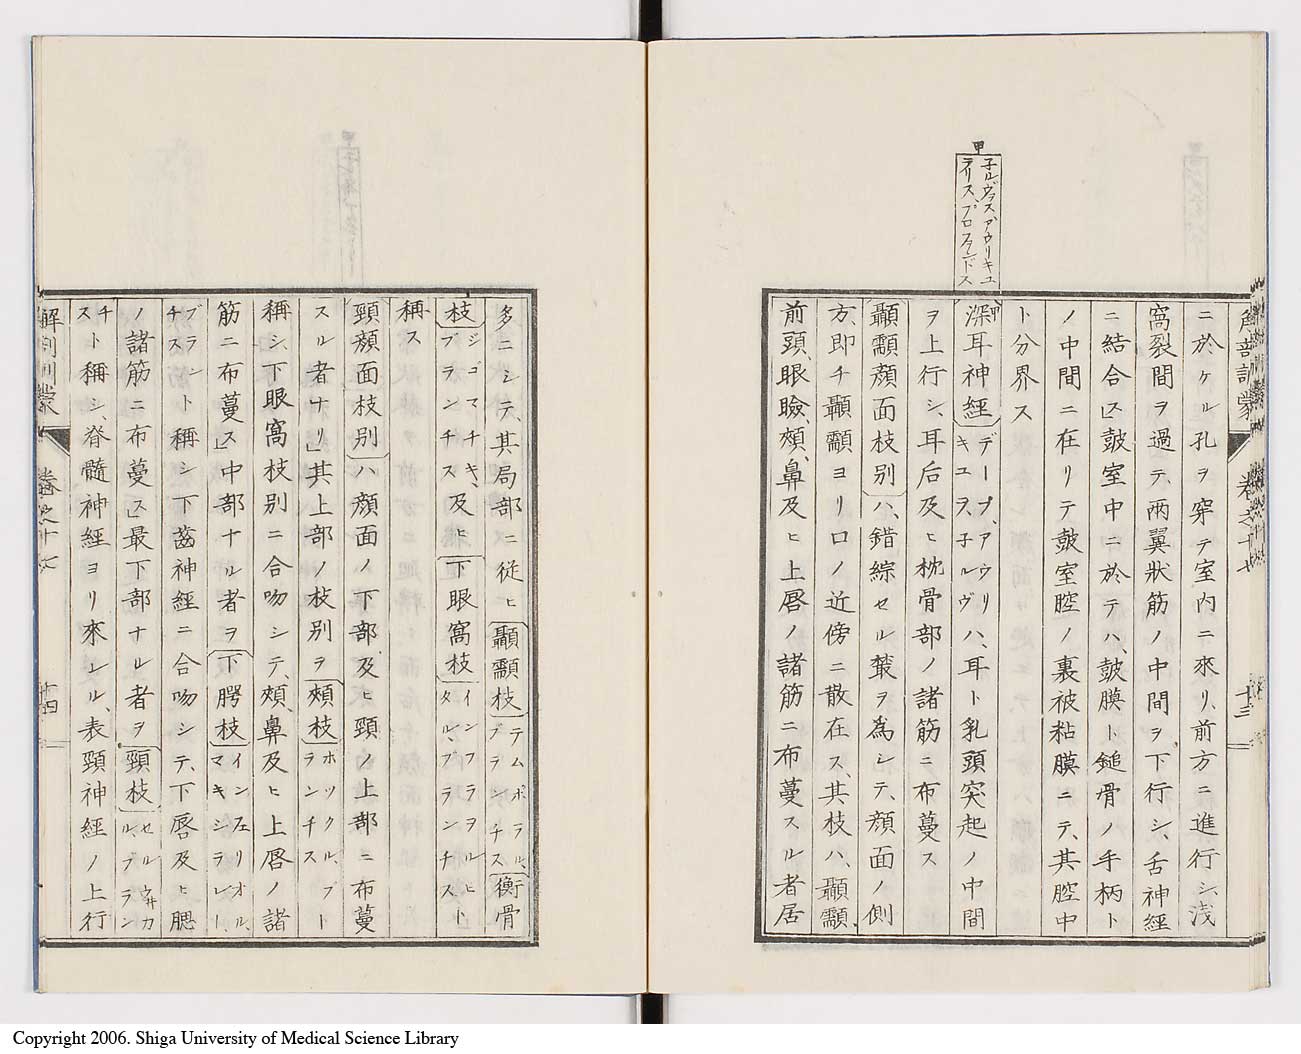 甲
子ルヴァス、アウリキユ
ラリス、プロフンドス
ニ於ケル孔ヲ穿テ室内ニ來リ、前方ニ進行シ、浅
窩裂間ヲ過テ、兩翼狀筋ノ中間ヲ下行シ、舌神經
ニ結合ス」皷室中ニ於テハ、皷膜ト鎚骨ノ手柄ト
ノ中間ニ在リテ皷室腔ノ裏被粘膜ニテ、其腔中
ト分界ス
甲
深耳神經デープ、アウリキユヲ、子ルヴハ、耳ト乳頭突起ノ中間
ヲ上行シ、耳后及ヒ枕骨部ノ諸筋ニ布蔓ス
顳顬顔面枝別ハ、錯綜セル叢ヲ為シテ、顔面ノ側
方、即チ顳顬ヨリ口ノ近傍ニ散在ス、其枝ハ、顳顬、
前頭、眼瞼、頰、鼻及ヒ上唇ノ諸筋ニ布蔓スル者居
解剖訓蒙
卷之十七
十三
多ニシテ、其局部ニ従ヒ顳顬枝テムポラル、ブランチス衡骨
枝ジゴマチキ、ブランチス、及ヒ下眼窩枝インフラヲルヒタル、ブランチスト
稱ス
頸顔面枝別ハ顔面ノ下部及ヒ頸ノ上部ニ布蔓
スル者ナリ」其上部ノ枝別ヲ頰枝ホックル、ブランチスト
稱シ、下眼窩枝別ニ合吻シテ、頰、鼻及ヒ上唇ノ諸
筋ニ布蔓ス」中部ナル者ヲ下腭枝インフェリオル、マキシラレー、
ブランチスト稱シ下齒神經ニ合吻シテ、下唇及ヒ腮
ノ諸筋ニ布蔓ス」最下部ナル者ヲ頸枝セルヴィカル、ブラン
チスト稱シ、脊髓神經ヨリ來レル、表頸神經ノ上行
解剖訓蒙
卷之十七
十四
Copyright 2006. Shiga University of Medical Science Library